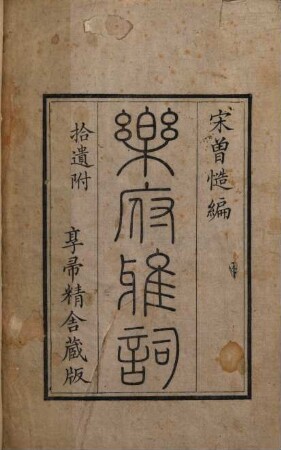 宋曾慥編
樂府雅詞
拾遺附
享帚精舍藏版